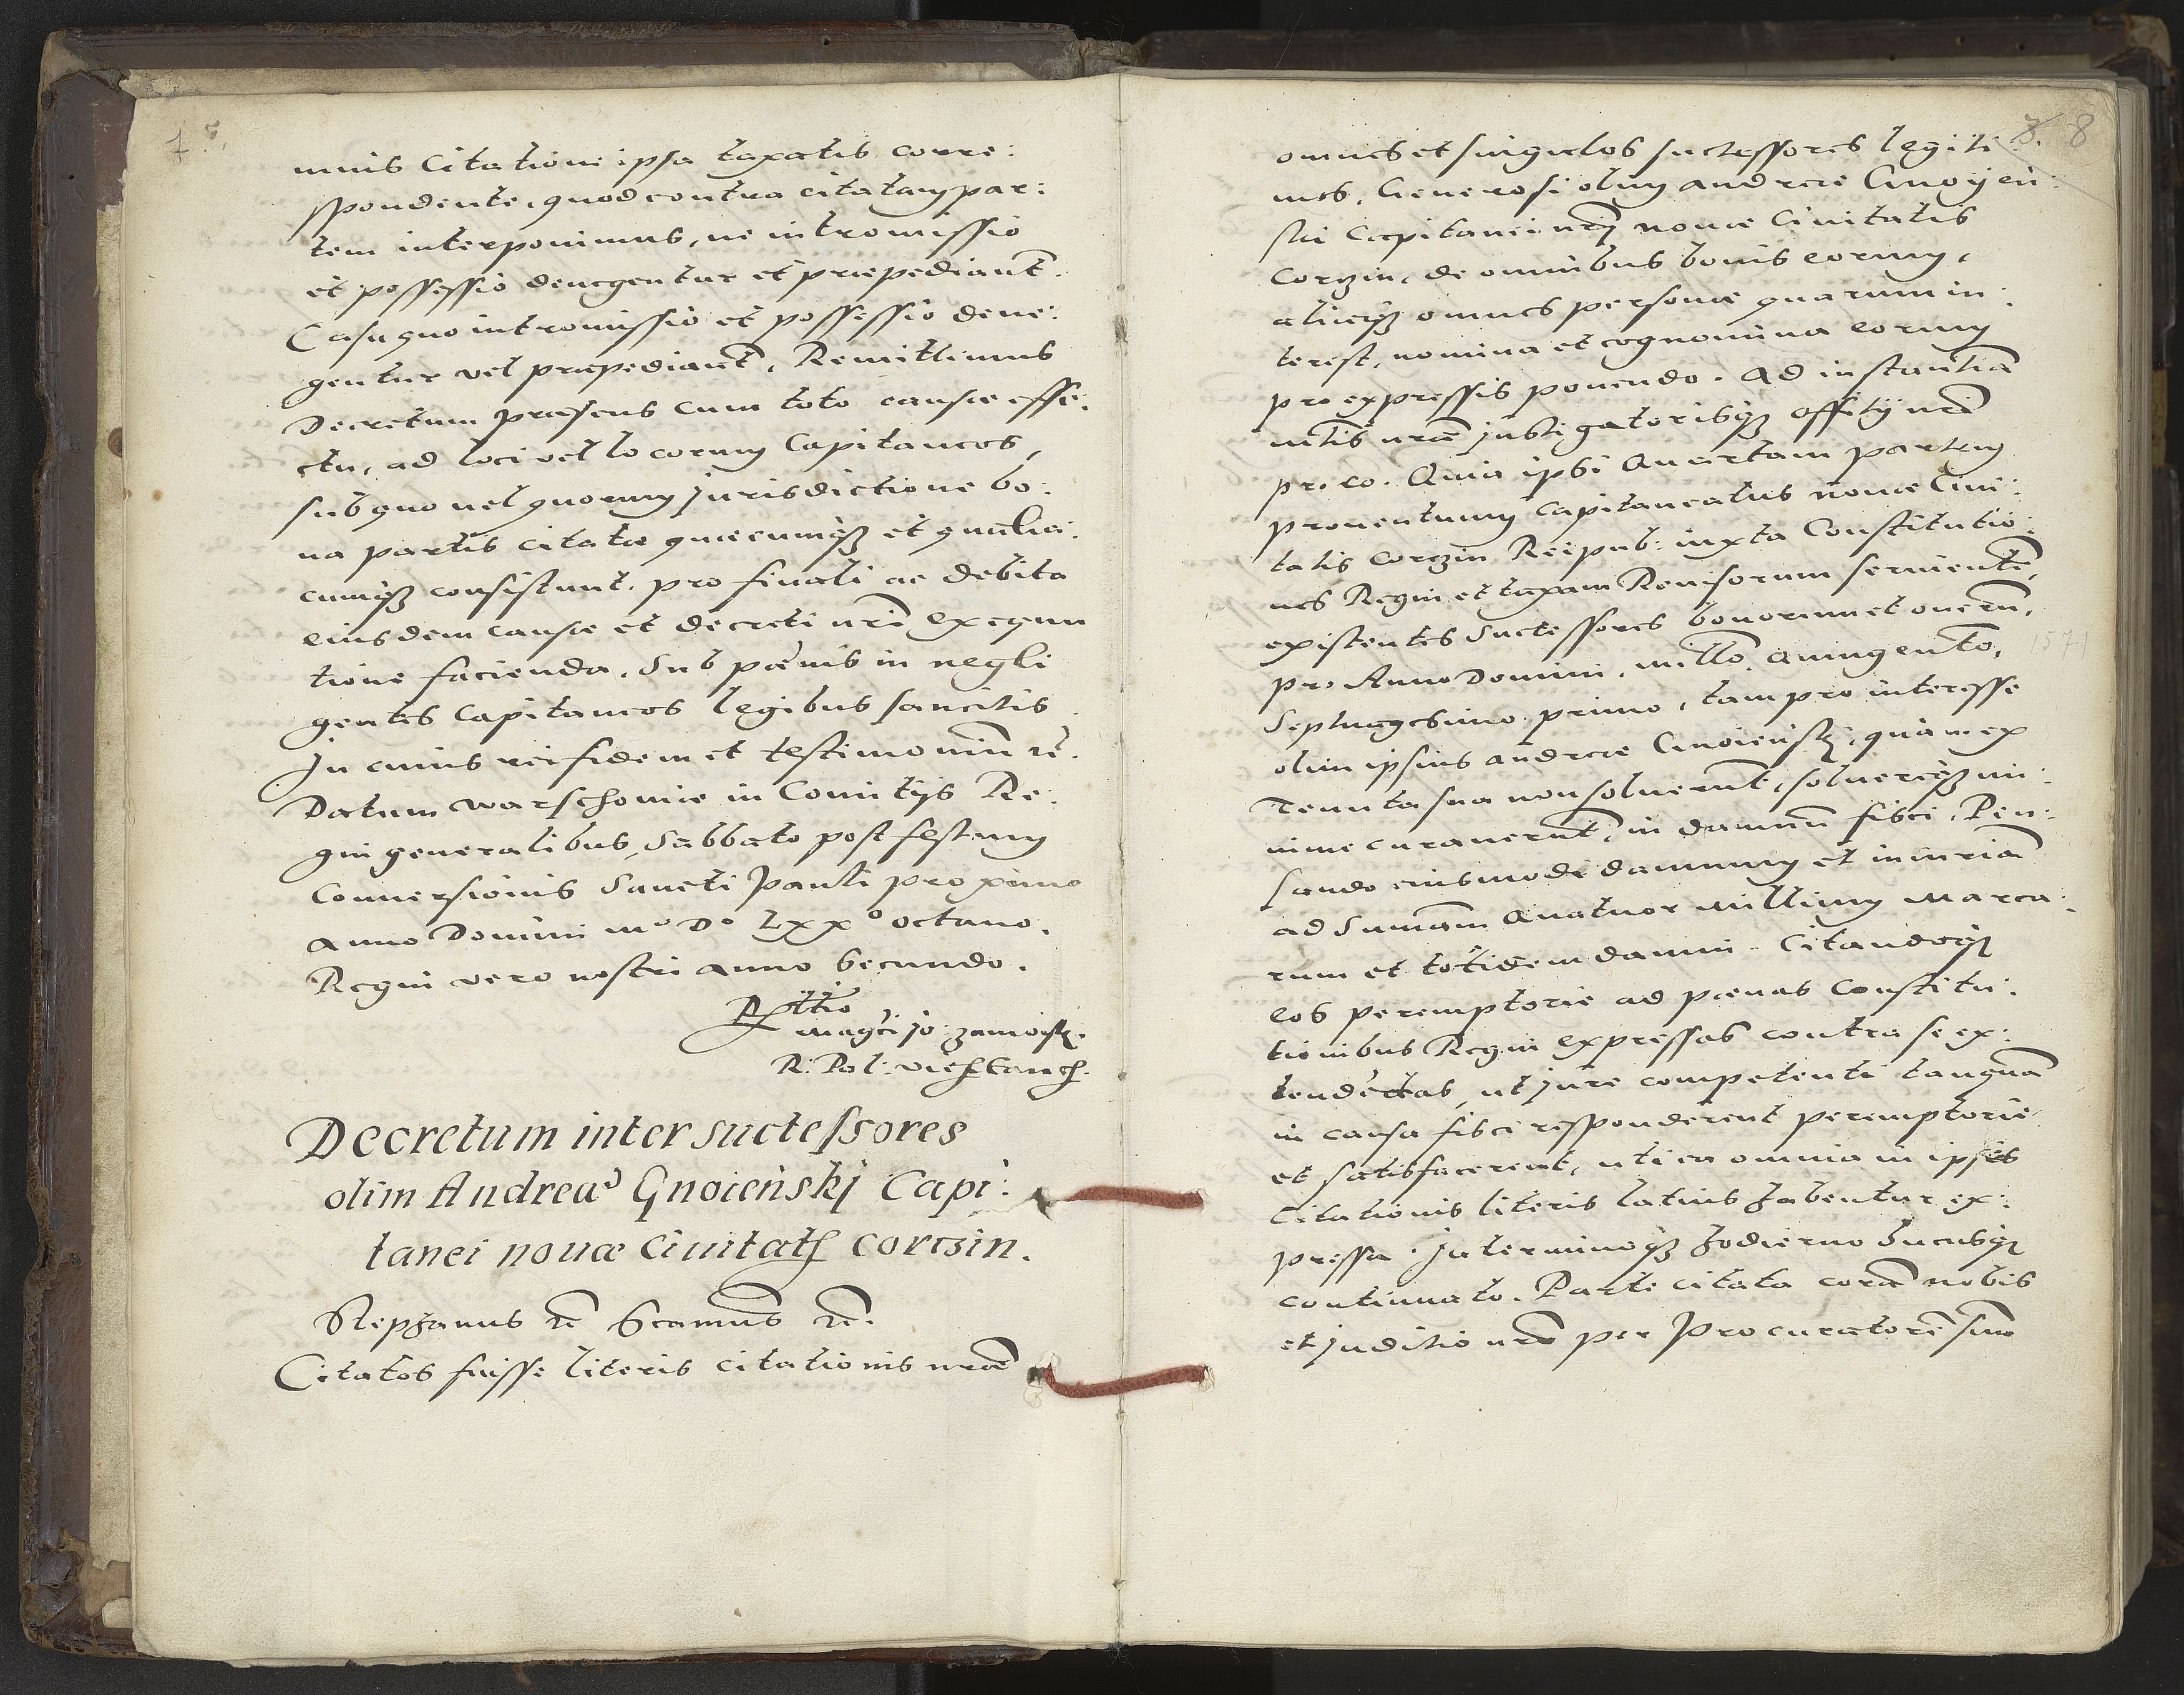 7.
mnis Citatione ipsa taxatis corre:
spondente, quod contra citatam par:
tem interponimus, ne intromissio
et possessio denegentur et præpediant̃.
Casu quo intromissio et possessio dene:
gentur vel præpediant̃, Remittimus
Decretum præsens cum toto causæ effe:
ctu, ad loci vel locorum Capitaneos,
sub quo vel quorum jurisdictione bo:
na partis citatæ quæcumqȝ et qualia:
cumqȝ consistunt, pro finali ac debita
eiusdem causæ et decreti nr̃i exequu
tione facienda. Sub pœnis in negli
gentes Capitaneos legibus sancitis
In cuius rei fidem et testimoniũ rẽ.
Datum Warschoviæ in Comitijs Re:
gni generalibus, Sabbato post festum
Conversionis Sancti Pauli proximo
Anno Domini Mº Dº LXXº octavo.
Regni vero nostri anno Secundo.
Rl̃tio
Magci Jo: Zamoisk.
R: Pol: Vicecanc.
Decretum inter suctessores
olim Andreæ Gnoieński Capi:
tanei novæ Civitatis Corczin.
Stephanus rẽ Scamus rẽ.
Citatos fuisse literis citationis nr̃æ
8. 8
omnes et singulos suctessores legiti
mos, Generosi olim Andreæ Gnoyen:
ski Capitanei nrj novæ Civitatis
Corczin, de omnibus bonis eorum,
aliasqȝ omnes personæ quarum in:
terest, nomina et cognomina eorum
pro expressis ponendo. Ad instantiã
mltis nr̃æ justigatorisqȝ offitij nr̃i
pro eo. Quia ipsi Quartam partem
proventuum Capitaneatus novæ Civi:
tatis Corczin Reipub: iuxta Constitutio:
nes Regni et taxam Revisorum servientẽ,
existentes Suctessores bonorum et onerũ,
1571
pro Anno Domini, millõ. Quingentõ,
Septuagesimo primo, tam pro interesse
olim ipsius Andreæ Gnoienskj, quàm ex
Tenuta sua non solverunt, solvereqȝ mi:
nime curaverunt, in damnũ fisci. Pen:
sando eiusmodi damnum et iniuriã
ad Sumam Quatuor millium marca:
rum et totidem damni. Citandoqȝ
eos peremptorie ad pœnas Constitu:
tionibus Regni expressas contra se ex:
tendẽdas, ut jure competenti tanquã
in causa fisci responderent peremptorie
et satisfacerent, uti ea omnia in ipsis
Citationis literis latius habentur ex:
pressa. In terminoqȝ hodierno hucusqȝ
continuato. Parte citata corã nobis
et juditio nr̃o per Procuratorẽ suũ